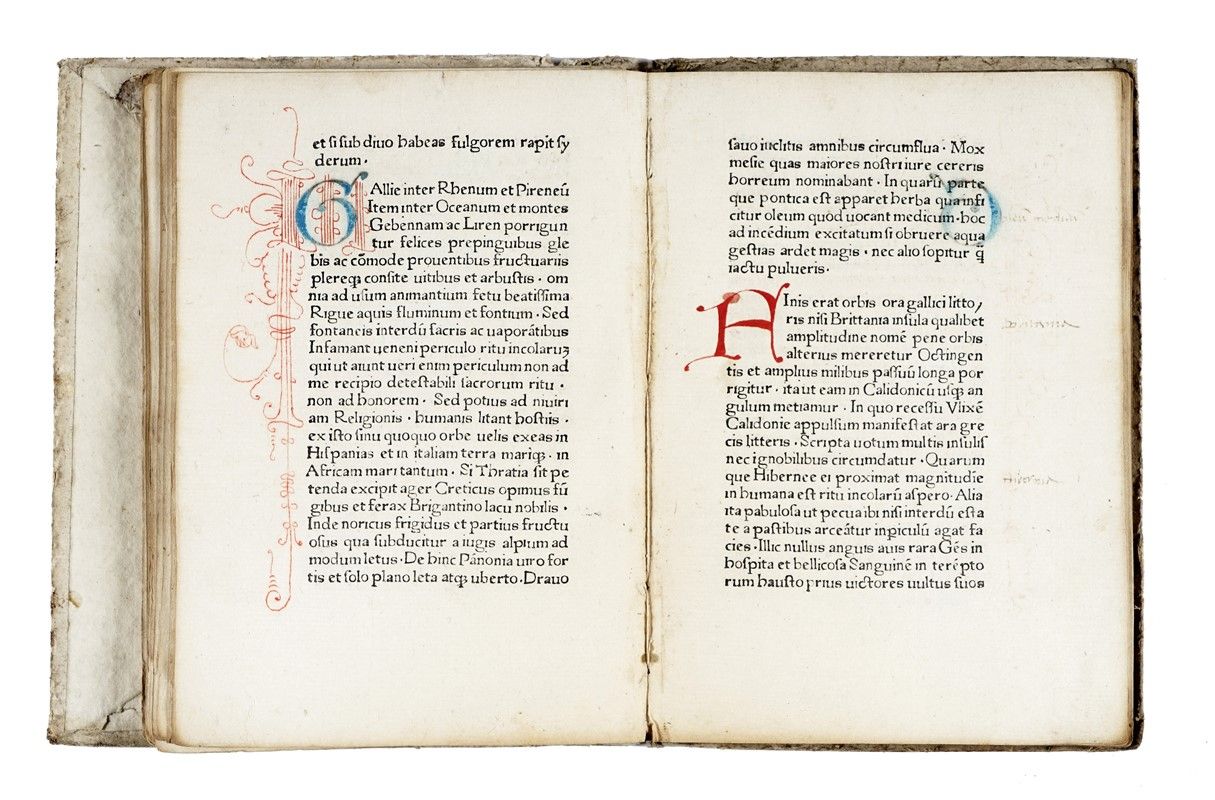 et si sub diuo habeas fulgorem rapit sy
derum·
GAllie inter Rhenum et Pireneū
Item inter Oceanum et montes
Gebennam ac Liren porrigun
tur felices prepinguibus gle
bis ac cōmode prouentibus fructuariis
plereqꝫ consite uitibus et arbustis · om
nia ad usum animantium fetu beatissima
Rigue aquis fluminum et fontium · Sed
fontaneis interdū sacris ac uaporātibus
Infamant ueneni periculo ritu incolaruꝫ
qui ut aiunt ueri enim periculum non ad
me recipio detestabili sacrorum ritu ·
non ad honorem · Sed potius ad niuiri
am Religionis · humanis litant hostiis ·
ex isto sinu quoquo orbe uelis exeas in
Hispanias et in italiam terra mariqꝫ · in
Africam mari tantum · Si Thratia sit pe
tenda excipit ager Creticus opimus fū
gibus et ferax Brigantino lacu nobilis ·
Inde noricus frigidus et partius fructu
osus qua subducitur a iugis alpium ad
modum letus · De hinc Pānonia uiro for
tis et solo plano leta atqꝫ uberto · Drauo
sauo iuclitis amnibus circumflua · Mox
mesie quas maiores nostri iure cereris
horreum nominabant · In quarū parte
que pontica est apparet herba qua infi
citur oleum quod uocant medicum · hoc
ad incēdium excitatum si obruere aqua
gestias ardet magis · nec alio sopitur q̄
iactu pulueris·
AInis erat orbis ora gallici litto/
ris nisi Brittania insula qualibet
amplitudine nomē pene orbis
alterius mereretur Octingen
tis et amplius milibus passuū longa por
rigitur · ita ut eam in Calidonicū usqꝫ an
gulum metiamur · In quo recessu Vlixē
Calidonie appulsum manifestat ara gre
cis litteris · Scripta uotum multis insulis
nec ignobilibus circumdatur · Quarum
que Hibernee ei proximat magnitudie
in humana est ritu incolarū aspero · Alia
ita pabulosa ut pecua ibi nisi interdū esta
te a pastibus arceātur inꝑiculū agat sa
cies · Illic nullus anguis auis rara Gēs in
hospita et bellicosa Sanguinē in terēpto
rum hausto prius uictores uultus suos